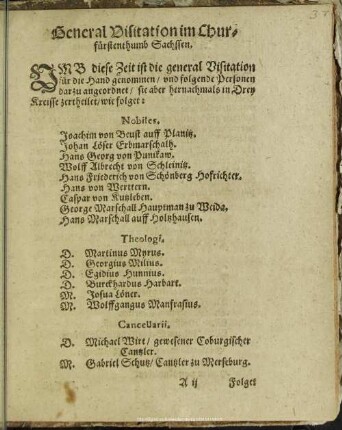 General Visitation im Chur-
fürstenthumb Sachssen.
UMB diese Zeit ist die general Visitation
für die Hand genommen / und folgende Personen
darzu angeordnet / sie aber hernachmals in Drey
Kreisse zertheilet / wie folget:
Nobiles.
Joachim von Beust auff Planitz.
Johan Löser Erbmarschaltz.
Hans Georg von Punikaw.
Wolff Albrecht von Schleinitz.
Hans Friederich von Schönberg Hofrichter.
Hans von Werttern.
Caspar von Kutzleben.
George Marschall Hauptman zu Weida.
Hans Marschall auff Holtzhausen.
Theologi.
D. Martinus Myrus.
D. Georgius Milius.
D. Egidius Hunnius.
D. Burckhardus Harbart.
M. Josua Löner.
M. Wolffgangus Manfrasius.
Cancellarii.
D. Michael Wirt / gewesener Coburgischer
Cantzler.
M. Gabriel Schutz / Cantzler zu Merseburg.
A ij Folget